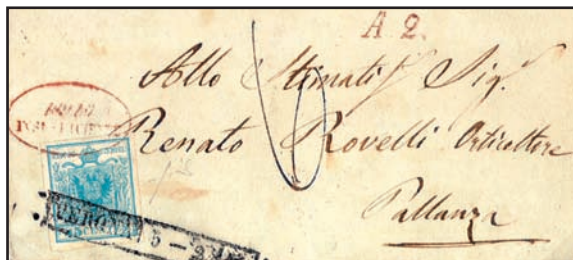 A 2.
Allo Stimatiss Sig.
Renato Rovelli Orticultore
Pallanza
VERONA
45 CENTES